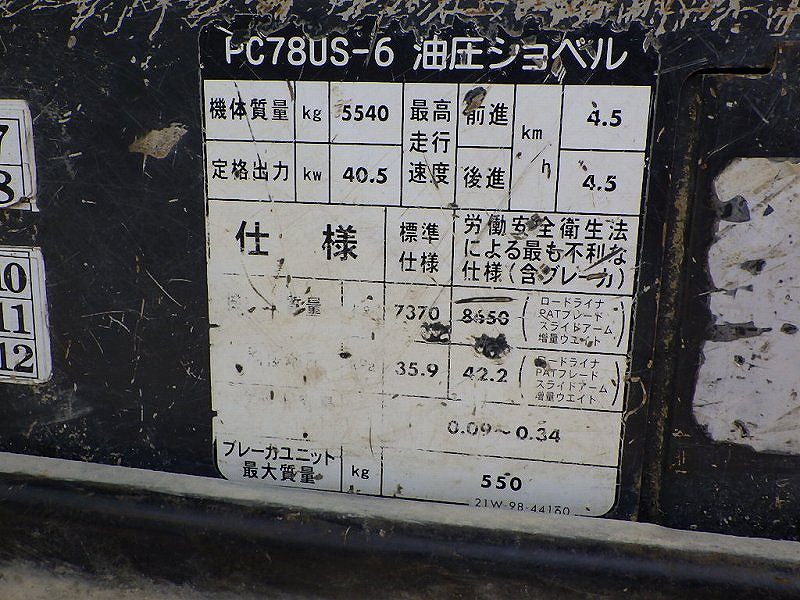 PC78US-6 油圧ショベル
機体質量 kg 5540 最高走行速度 前進 km/h 4.5
定格出力 kw 40.5 後進 4.5
仕様 標準仕様 労働安全衛生法による最も不利な仕様(含ブレーカ)
質量 7370 8650 (ロードライナ PATブレード スライドアーム 増量ウエイト)
35.9 42.2 (ロードライナ PATブレード スライドアーム 増量ウエイト)
0.09~0.34
ブレーカユニット最大質量 kg 550
21W-98-44160
7
8
10
11
12